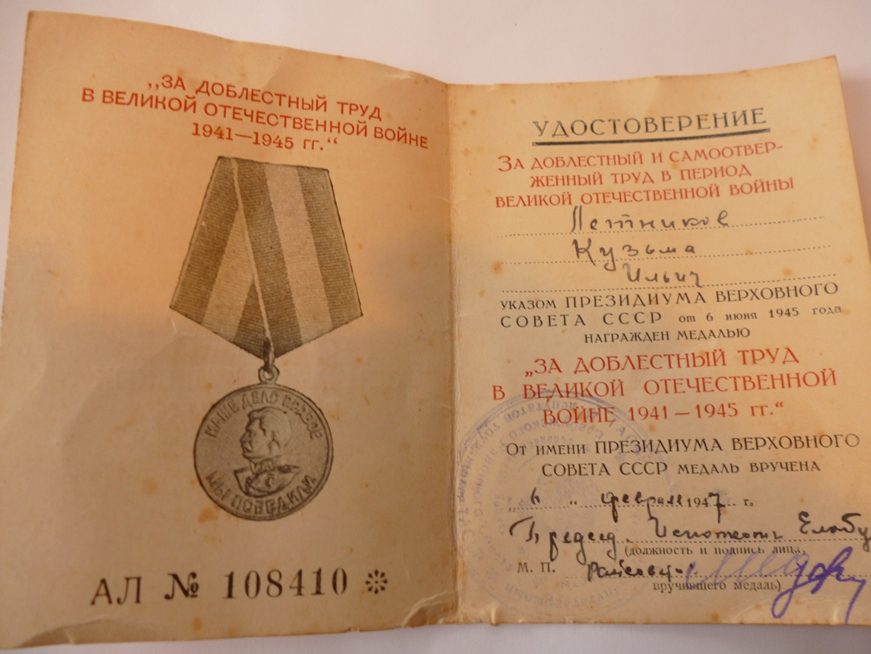 „ЗА ДОБЛЕСТНЫЙ ТРУД
В ВЕЛИКОЙ ОТЕЧЕСТВЕННОЙ ВОЙНЕ
1941—1945 гг.“
НАШЕ ДЕЛО ПРАВОЕ
МЫ ПОБЕДИЛИ
АЛ № 108410
УДОСТОВЕРЕНИЕ
ЗА ДОБЛЕСТНЫЙ И САМООТВЕР-
ЖЕННЫЙ ТРУД В ПЕРИОД
ВЕЛИКОЙ ОТЕЧЕСТВЕННОЙ ВОЙНЫ
Кузьма
Ильич
УКАЗОМ ПРЕЗИДИУМА ВЕРХОВНОГО
СОВЕТА СССР от 6 июня 1945 года
НАГРАЖДЕН МЕДАЛЬЮ
„ЗА ДОБЛЕСТНЫЙ ТРУД
В ВЕЛИКОЙ ОТЕЧЕСТВЕННОЙ
ВОЙНЕ 1941—1945 гг.“
От имени ПРЕЗИДИУМА ВЕРХОВНОГО
СОВЕТА СССР МЕДАЛЬ ВРУЧЕНА
„6 “ февраля 1947 г.
Председ. Елабу
(должность и подпись лица,
М. П.
вручившего медаль)